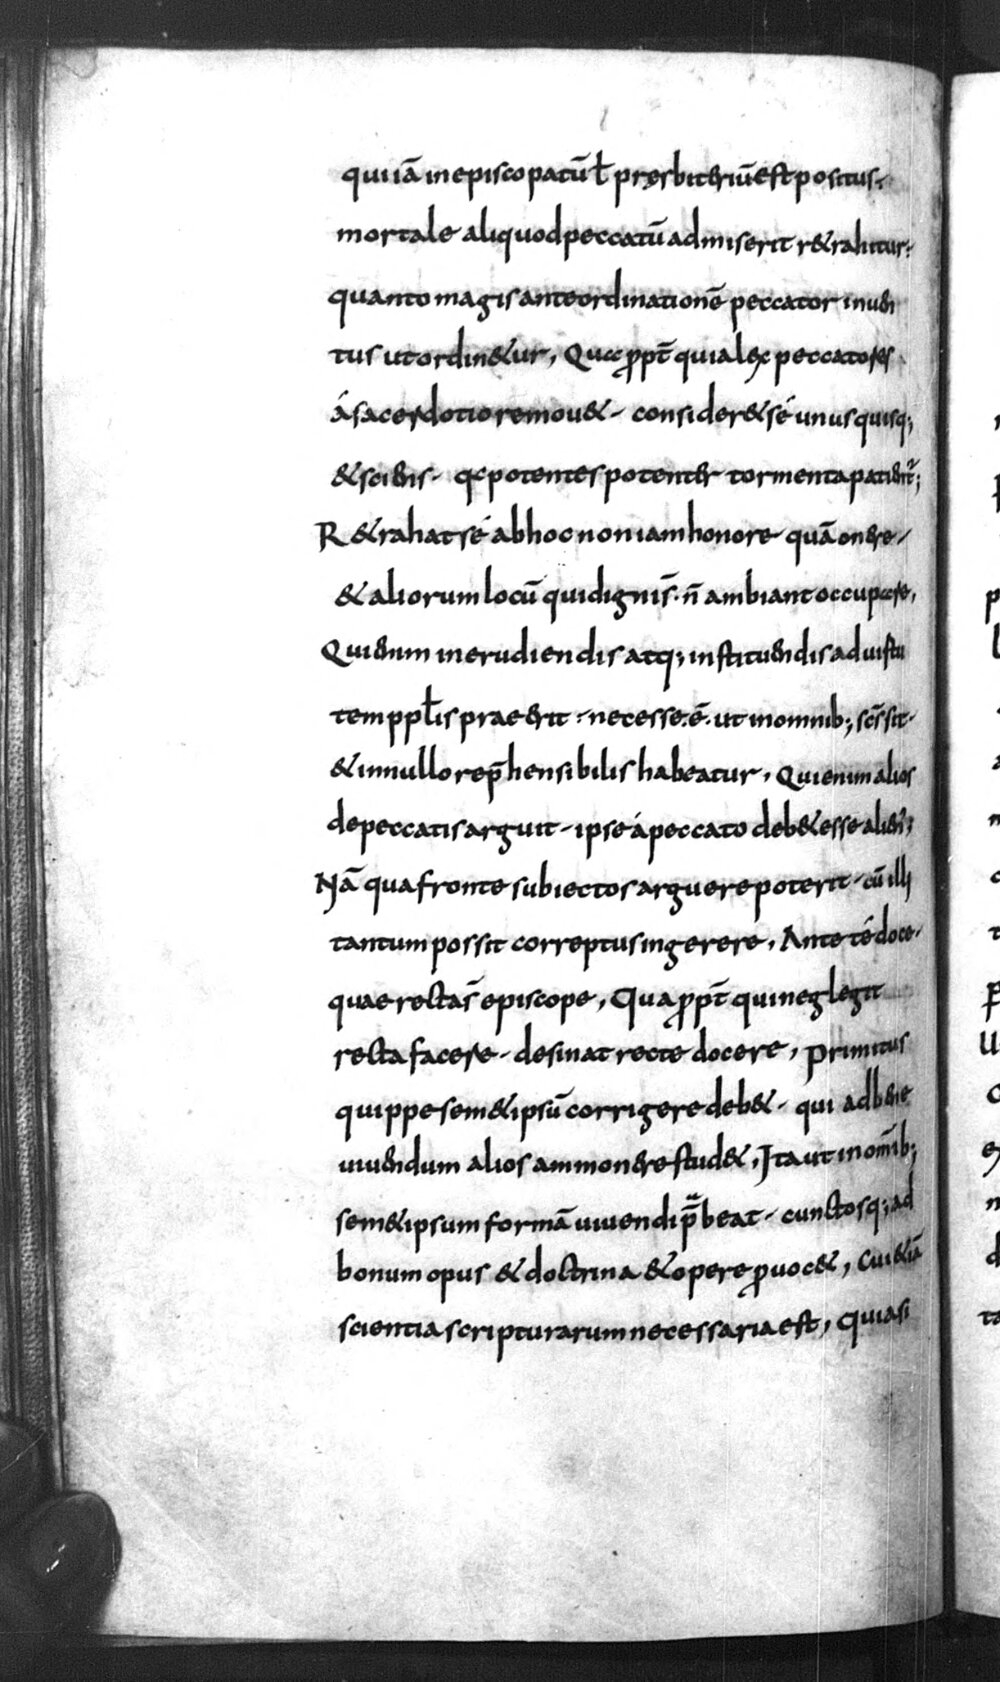 qui iā in episcopatū ł pręsbiteriū est positus.
mortale aliquod peccatū admiserit r&rahitur.
quanto magis ante ordinationē peccator inuen
tus ut ordin&ur, Qua ꝓpt̄ quia lex peccatores
á sacerdotio remou& - consider& sé unus quisq;
& sciens - q potentes potenter tormenta patient̄;
R&rahat sé ab hoc non iam honore quā onere -
& aliorum locū qui digni s̄. n̄ ambiant occupare,
Qui enim in erudiendis atq; instituendis ad uirtu
tem pplīs praeerit - necesse. ē. ut in omnib; scs̄ sit -
& in nullo rep̄hensibilis habeatur, Qui enim alios
de peccatis arguit - ipse á peccato deb& esse alien;
Nā qua fronte subiectos arguere poterit - cū illi
tantum possit correptus ingerere, Ante té doce -
quae recta s̄ episcope, Qua ꝓpt̄ qui neglegit
recta facere - desinat recte docere, Primitus
quippe sem&ipsū corrigere deb& - qui ad bene
uiuendum alios ammonere stud&, Ita ut in omīb;
sem&ipsum formā uiuendi p̄beat - cunctosq; ad
bonum opus & doctrina & opere ꝓuoc&, Cui &iā
scientia scripturarum necessaria est, Quia si